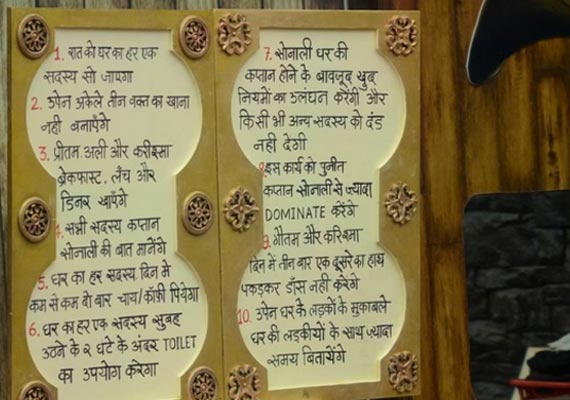 1. रात को घर का हर एक
सदस्य सो जाएगा
2. उपेन अकेले तीन वक्त का खाना
नही बनाएँगे
3. प्रीतम, अली और करिश्मा
ब्रेकफास्ट, लँच और
डिनर खाएँगे
4. सभी सदस्य कप्तान
सोनाली की बात मानेंगे
5. घर का हर सदस्य दिन मे
कम से कम दो बार चाय/कॉफी पियेगा
6. घर का हर एक सदस्य सुबह
उठने के २ घंटे के अंदर TOILET
का उपयोग करेगा
7. सोनाली घर की
कप्तान होने के बावजूद खुद
नियमों का उलंघन करेंगी और
किसी भी अन्य सदस्य को दंड
नही देगी
8. इस कार्य को पुनीत
कप्तान सोनाली से ज्यादा
DOMINATE करेंगे
9. गौतम और करिश्मा
दिन में तीन बार एक दूसरे का हाथ
पकड़कर डाँस नही करेंगे
10. उपेन घर के लड़कों के मुकाबले
घर की लडकीयों के साथ ज्यादा
समय बितायेंगे